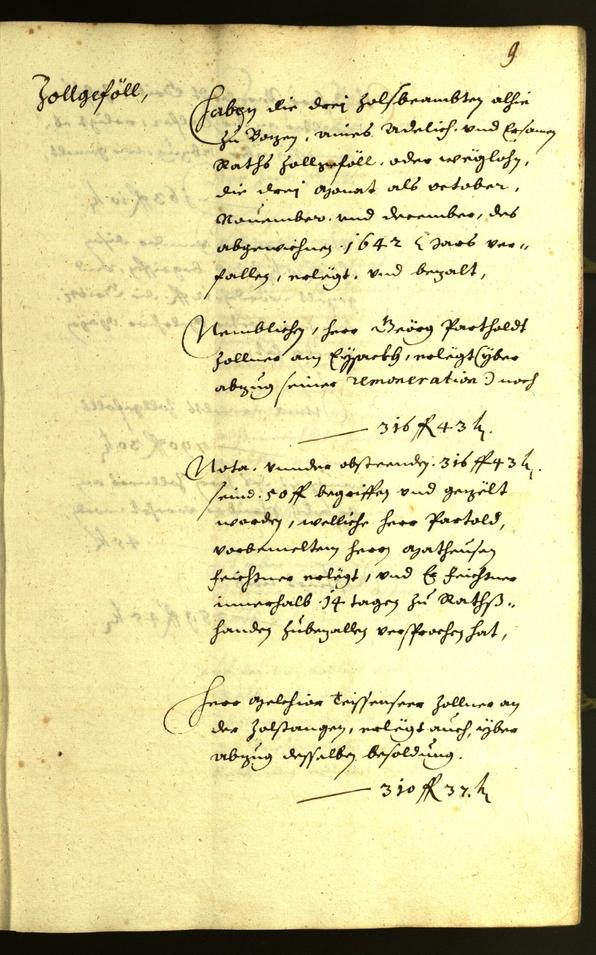 9
Zollgeföll,
Haben die drej Zolsbeambten alhie
zu Bozen, aines Adelich. und Ersamen
Raths Zollgeföll, oder weglohn,
die drej Monat als october,
November. und december, des
abgewichnen .1642 Jars ver¬
fallen, erlegt. und bezalt,
Nemblichen, herr Geörg Partholdt
Zollner am Eysackh, erlegt (yber
abzug seiner remoneration) noch
316 ff 43 k.
Nota. under obsteenden. 316 ff 43 k.
seind. 50 ff begriffen und gezölt
worden, welliche herr Partold,
vorbemeltem herrn Matheusen
Feichtner erlegt, und Er Feichtner
innerhalb .14 tagen zu Rathß¬
handen zubezallen versprochen hat,
Herr Melchior Teissenseer Zollner an
der Zolstangen, erlegt auch, yber
abzug desselben besoldung.
310 ff 37. k